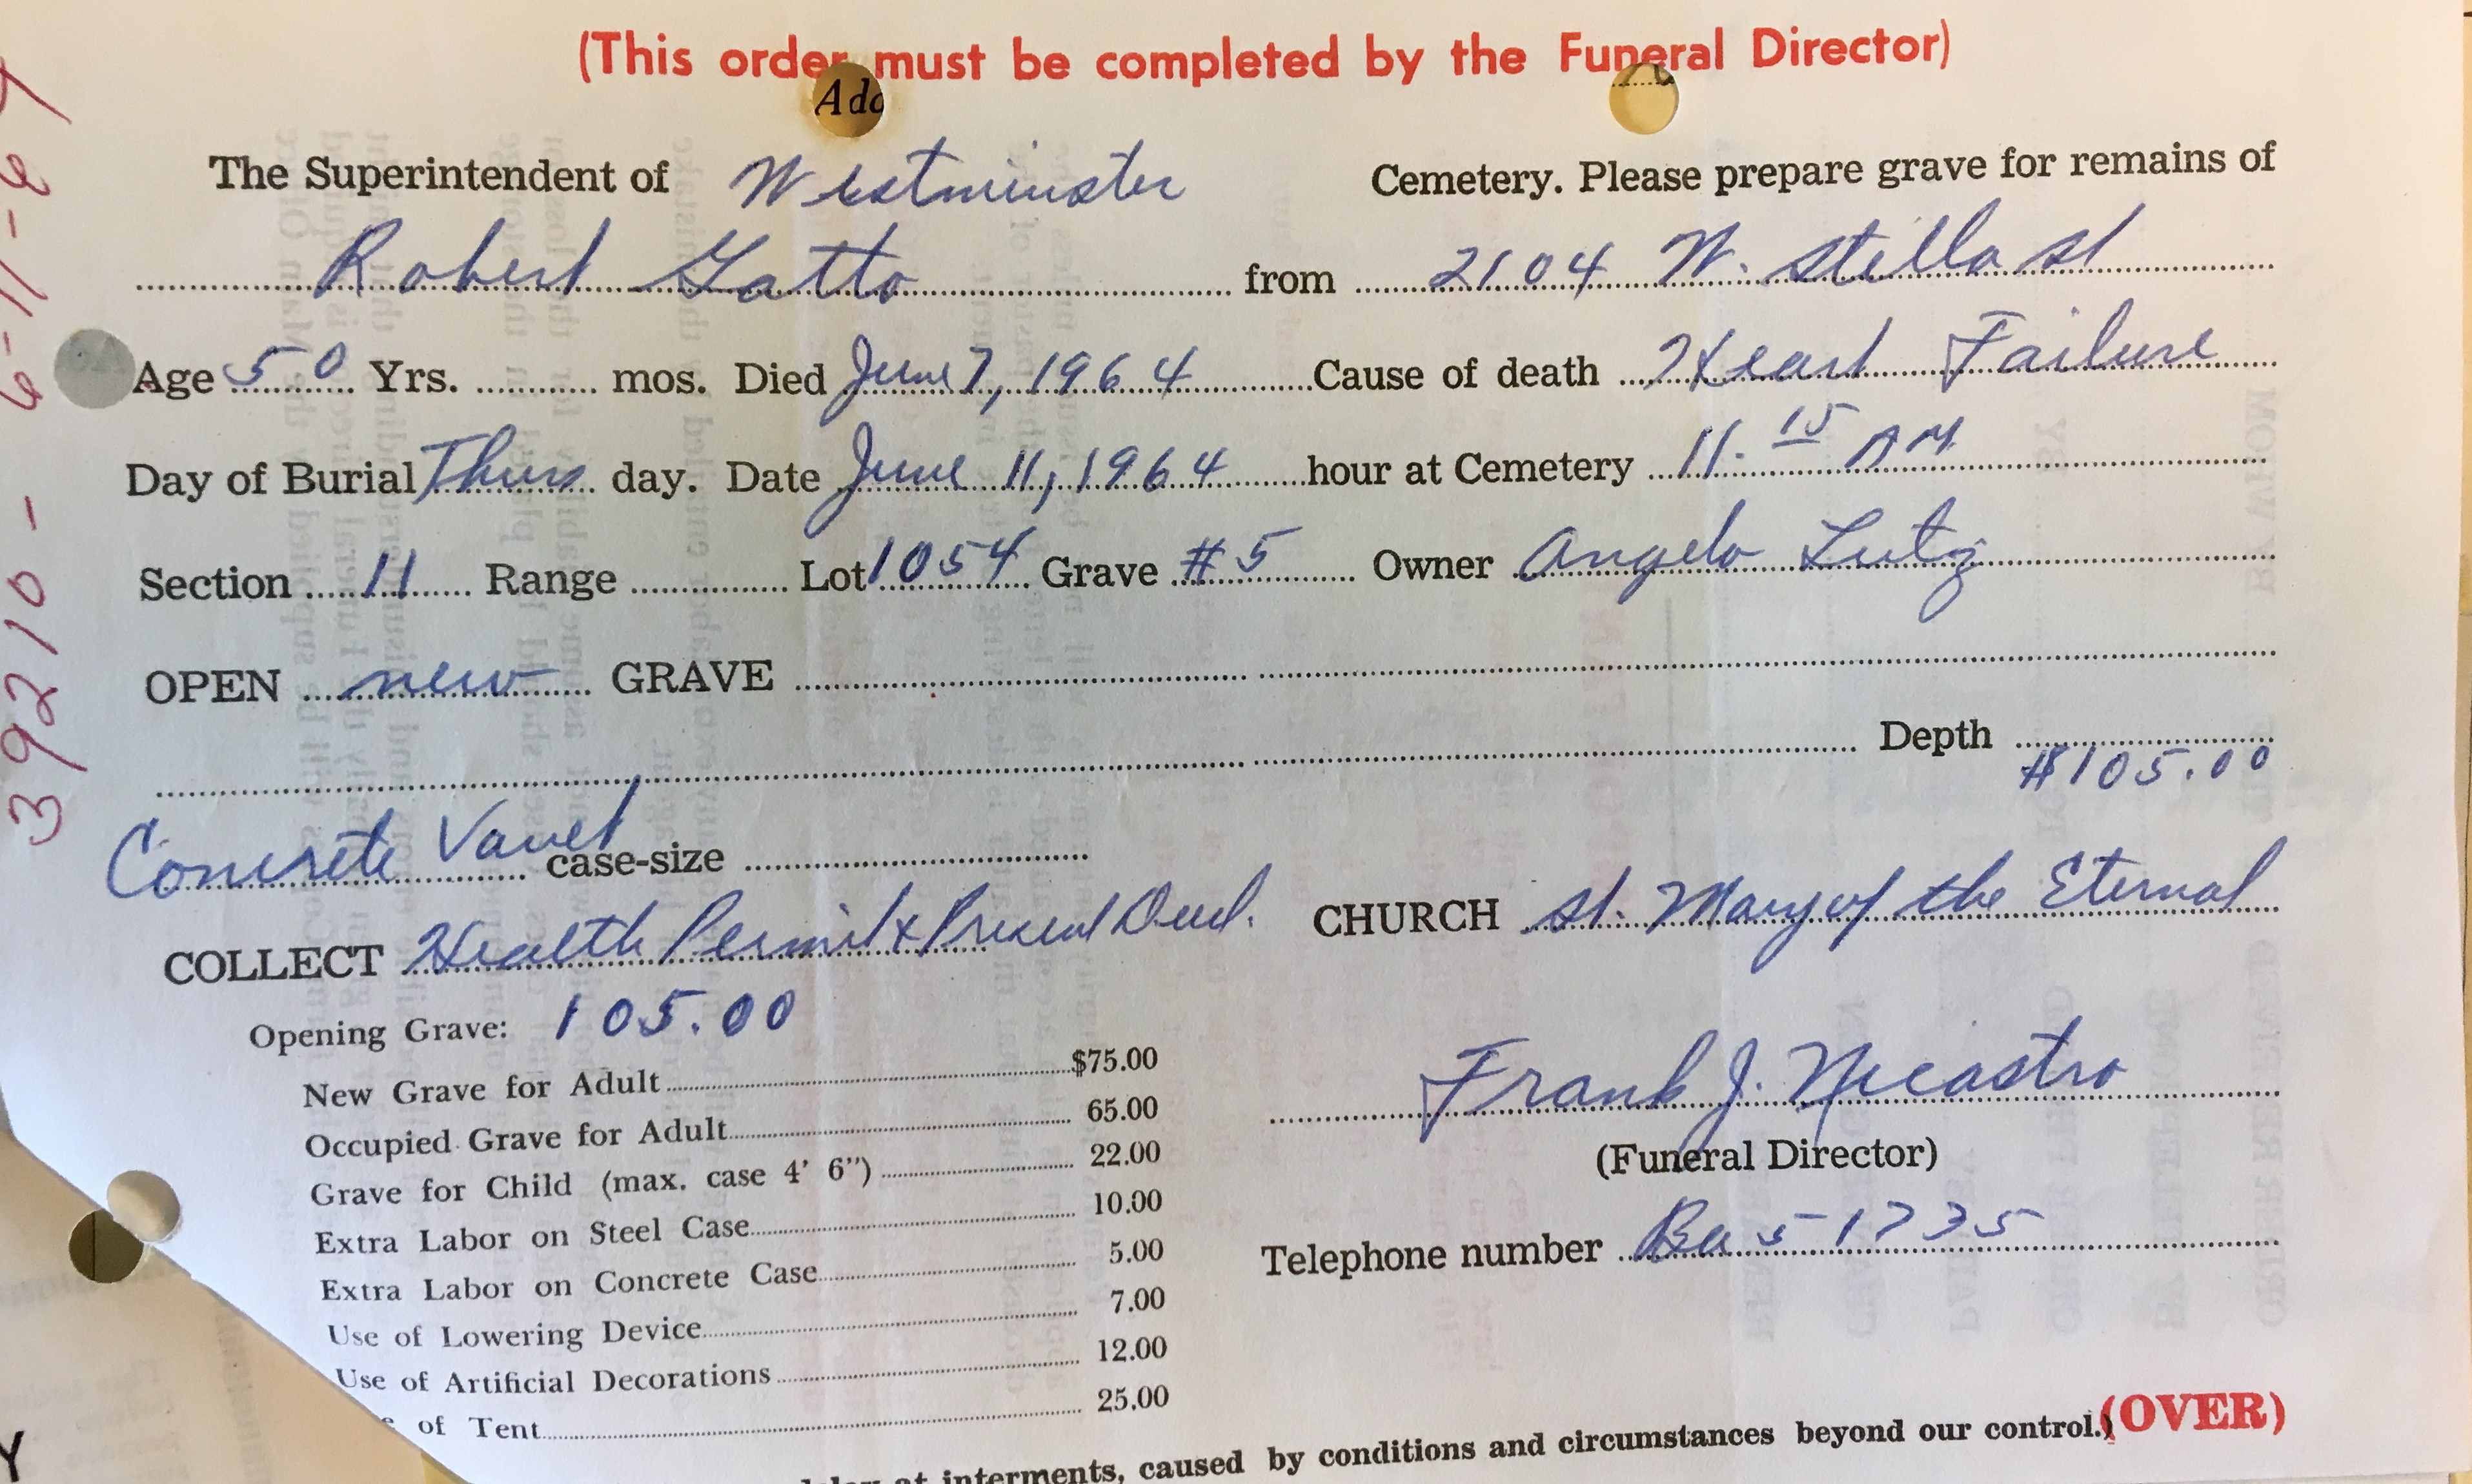 (This order must be completed by the Funeral Director)
Add
The Superintendent of Westminster Cemetery. Please prepare grave for remains of
Robert Gatto from 2104 W. Stella St
Age 50 Yrs. ........ mos. Died June 7, 1964 Cause of death Heart Failure
Day of Burial Thurs day. Date June 11, 1964 hour at Cemetery 11.15 AM
Section 11 Range ........ Lot 1054 Grave #5 Owner Angelo Lutz
OPEN new GRAVE
Depth
$105.00
Concrete Vault case-size
COLLECT Health Permit & Present Deed. CHURCH St. Mary of the Eternal
Opening Grave: 105.00
New Grave for Adult $75.00
Occupied Grave for Adult 65.00
Grave for Child (max. case 4' 6") 22.00
Extra Labor on Steel Case 10.00
Extra Labor on Concrete Case 5.00
Use of Lowering Device 7.00
Use of Artificial Decorations 12.00
of Tent 25.00
Frank J. Nicastro
(Funeral Director)
Telephone number Ba 5 1735
at interments, caused by conditions and circumstances beyond our control.)
(OVER)
39210 - 6-11-64
Y